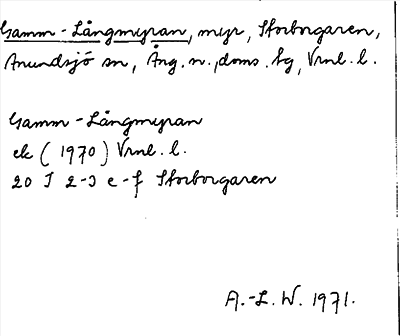 Gamm-Långmyran, myr, Storborgaren,
Anundsjö sn, Ång. n., doms. hg, Vrnl. l.
Gamm-Långmyran
ek (1970) Vrnl. l.
20 J 2-3 e-f Storborgaren
A.-L. W. 1971.